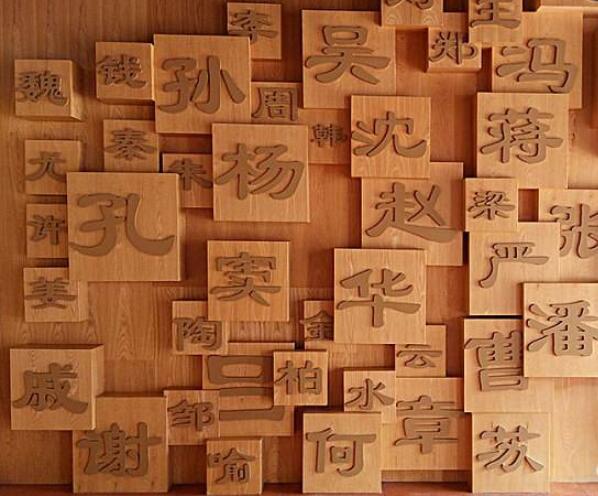 李
吴
王
郑
冯
魏
钱
孙
周
韩
沈
蒋
尤
秦
朱
杨
许
孔
赵
梁
张
姜
窦
华
严
陶
金
潘
戚
吕
柏
云
曹
谢
邹
水
喻
何
章
苏